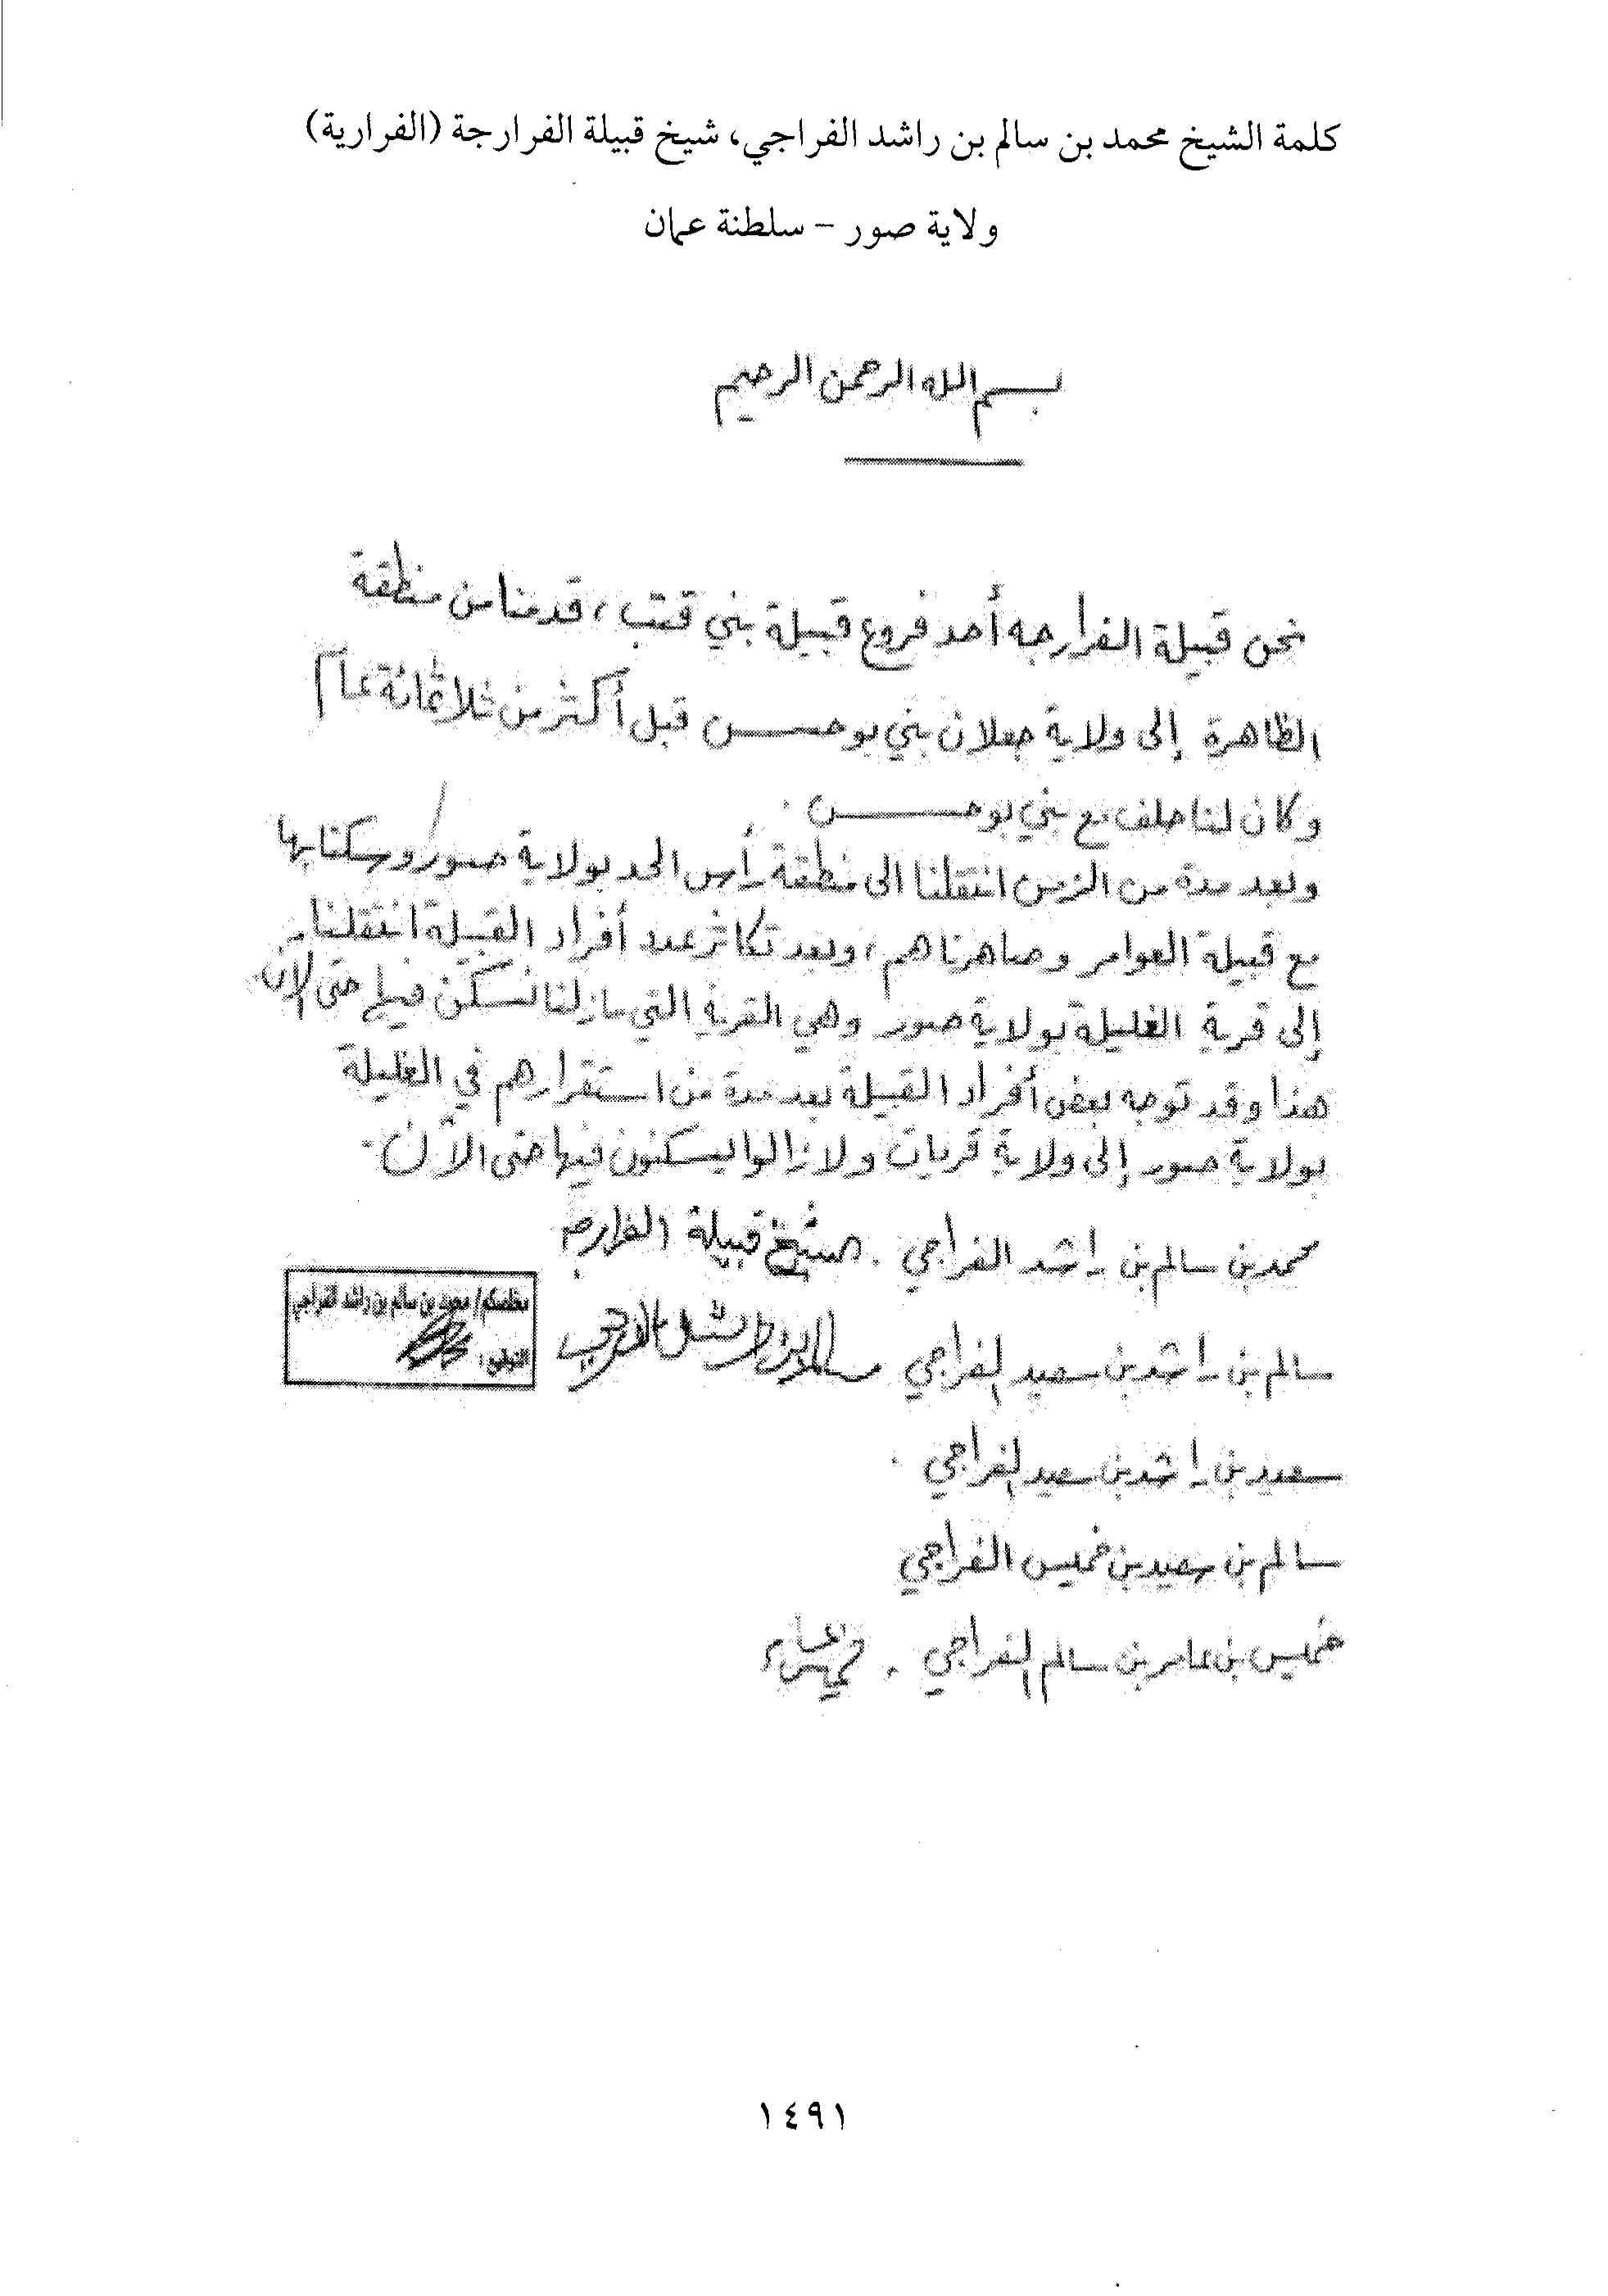 كلمة الشيخ محمد بن سالم بن راشد الفراجي، شيخ قبيلة الفرارجة (الفرارية)
ولاية صور - سلطنة عمان
بسم الله الرحمن الرحيم
نحن قبيلة الفرارجه أحد فروع قبيلة بني قتب، قدمنا من منطقة
الظاهرة إلى ولاية جعلان بني بو حسن قبل أكثر من ثلاثمائة عام
وكان لنا حلف مع بني بو حسن .
وبعد مدة من الزمن انتقلنا الى منطقة رأس الحد بولاية صور وسكنا بها
مع قبيلة العوامر وصاهرناهم، وبعد تكاثر عدد أفراد القبيلة انتقلنا
إلى قرية الغليلة بولاية صور وهي القرية التي مازلنا نسكن فيها حتى الان
هذا وقد توجه بعض أفراد القبيلة بعد مدة من استقرارهم في الغليلة
بولاية صور إلى ولاية قريات ولازالوا يسكنون فيها حتى الآن .
محمد بن سالم بن راشد الفراجي . الشيخ قبيلة الفرارجه
سالم بن راشد بن سعيد الفراجي سالم بن راشد الفراجي
محمد بن سالم بن راشد الفراجي
التوقيع :
سعيد بن راشد بن سعيد الفراجي .
سالم بن سعيد بن خميس الفراجي
خميس بن عامر بن سالم الفراجي . خميس
١٤٩١